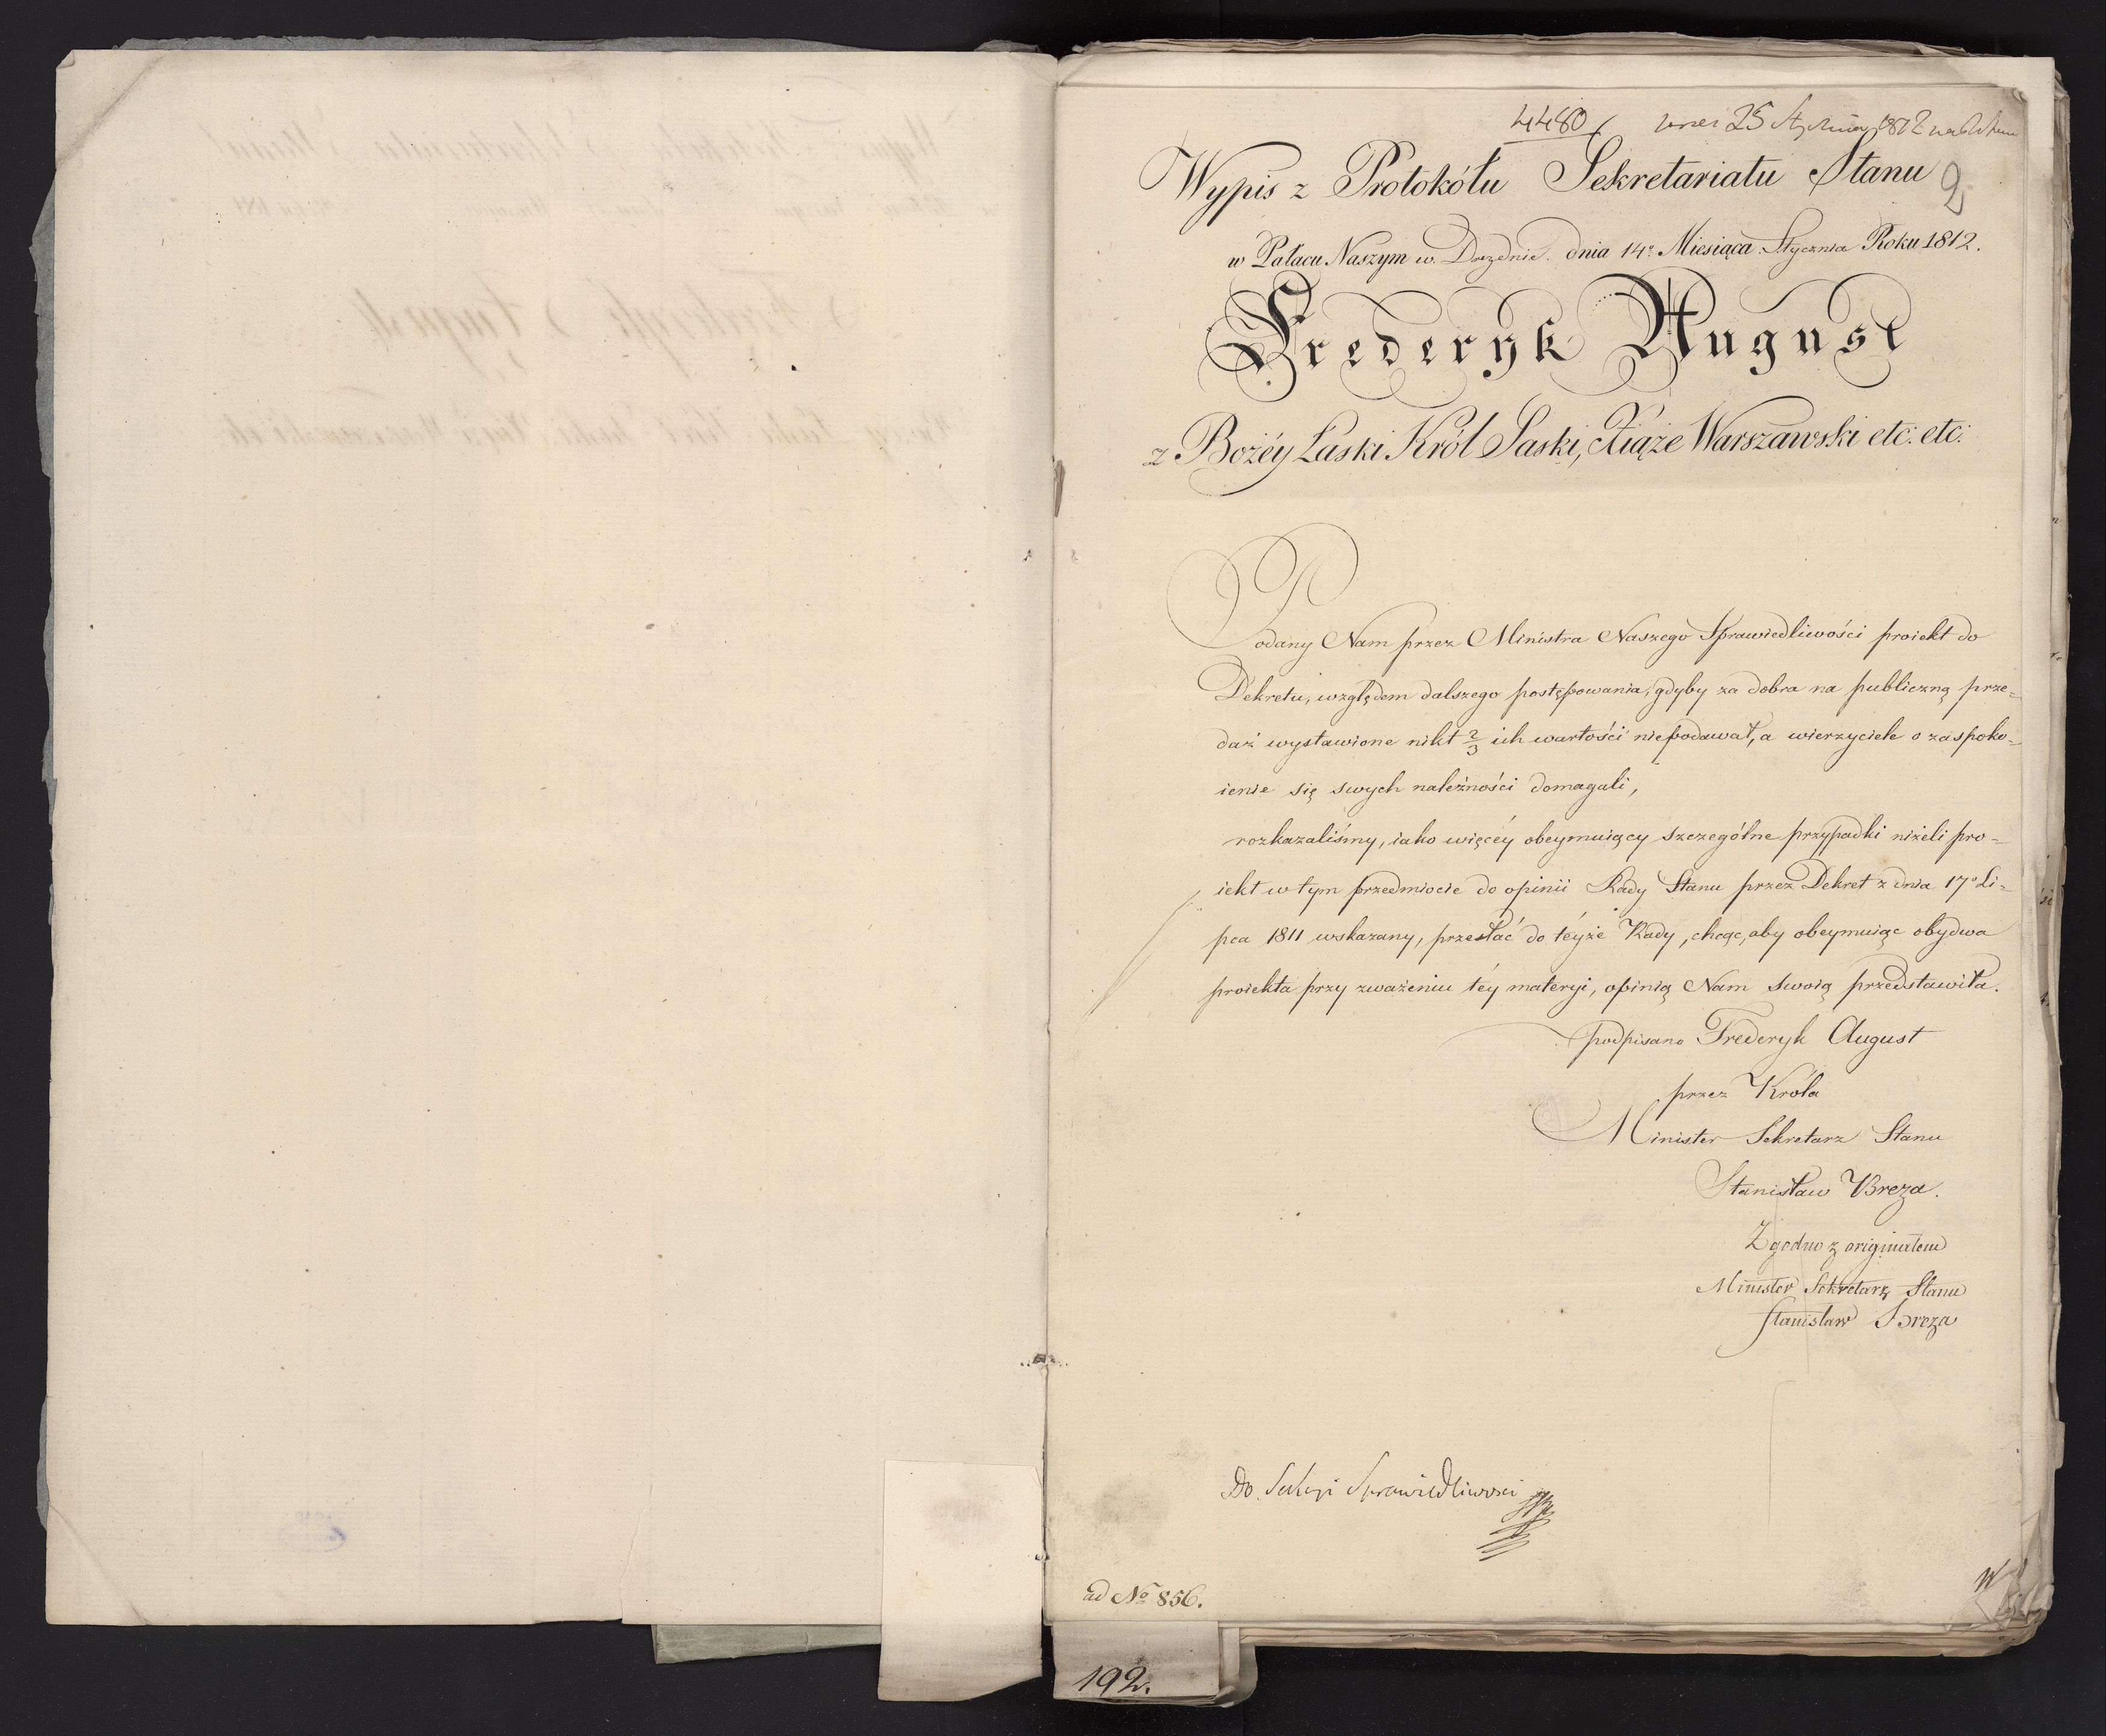 4480
25 Stycznia 1812
Wypis z Protokółu Sekretariatu Stanu
2
w Pałacu Naszym w Dreznie dnia 14º Miesiąca Stycznia Roku 1812.
Frederyk August
z Bożéy Łaski Król Saski, Xiąże Warszawski etc: etc:
Podany Nam przez Ministra Naszego Sprawiedliwości proiekt do
Dekretu, względem dalszego postępowania, gdyby za dobra na publiczną prze-
daż wystawione nikt 2/3 ich wartości niepodawał, a wierzyciele o zaspoko-
ienie się swych należności domagali,
rozkazaliśmy, iako więcéy obeymuiący szczególne przypadki niżeli pro-
iekt w tym przedmiocie do opinii Rady Stanu przez Dekret z dnia 17º Li-
pca 1811 wskazany, przesłać do téyże Rady, chcąc, aby obeymuiąc obydwa
proiekta przy zważeniu téy materyi, opinią Nam swoią przedstawiła.
podpisano Frederyk August
przez Króla
Minister Sekretarz Stanu
Stanisław Breza.
Zgodno z originałem
Minister Sekretarz Stanu
Stanisław Breza
Do Sekcyi Sprawiedliwosci
ad Nº 856.
192.